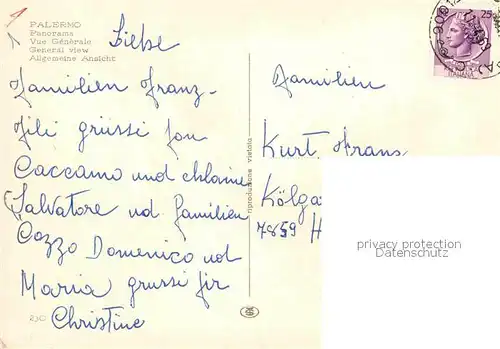 PALERMO
Panorama
Vue Générale
General view
Allgemeine Ansicht
Liebe
Familien Franz-
Fili grüssi fon
Caccamo und chlaine
Salvatore nd. familien
Cozzo Domenico nd
Maria grussi fir
Christine
riproduzione vietata
Familien
Kurt. Frans
Kölga
7859 H
25
privacy protection
Datenschutz